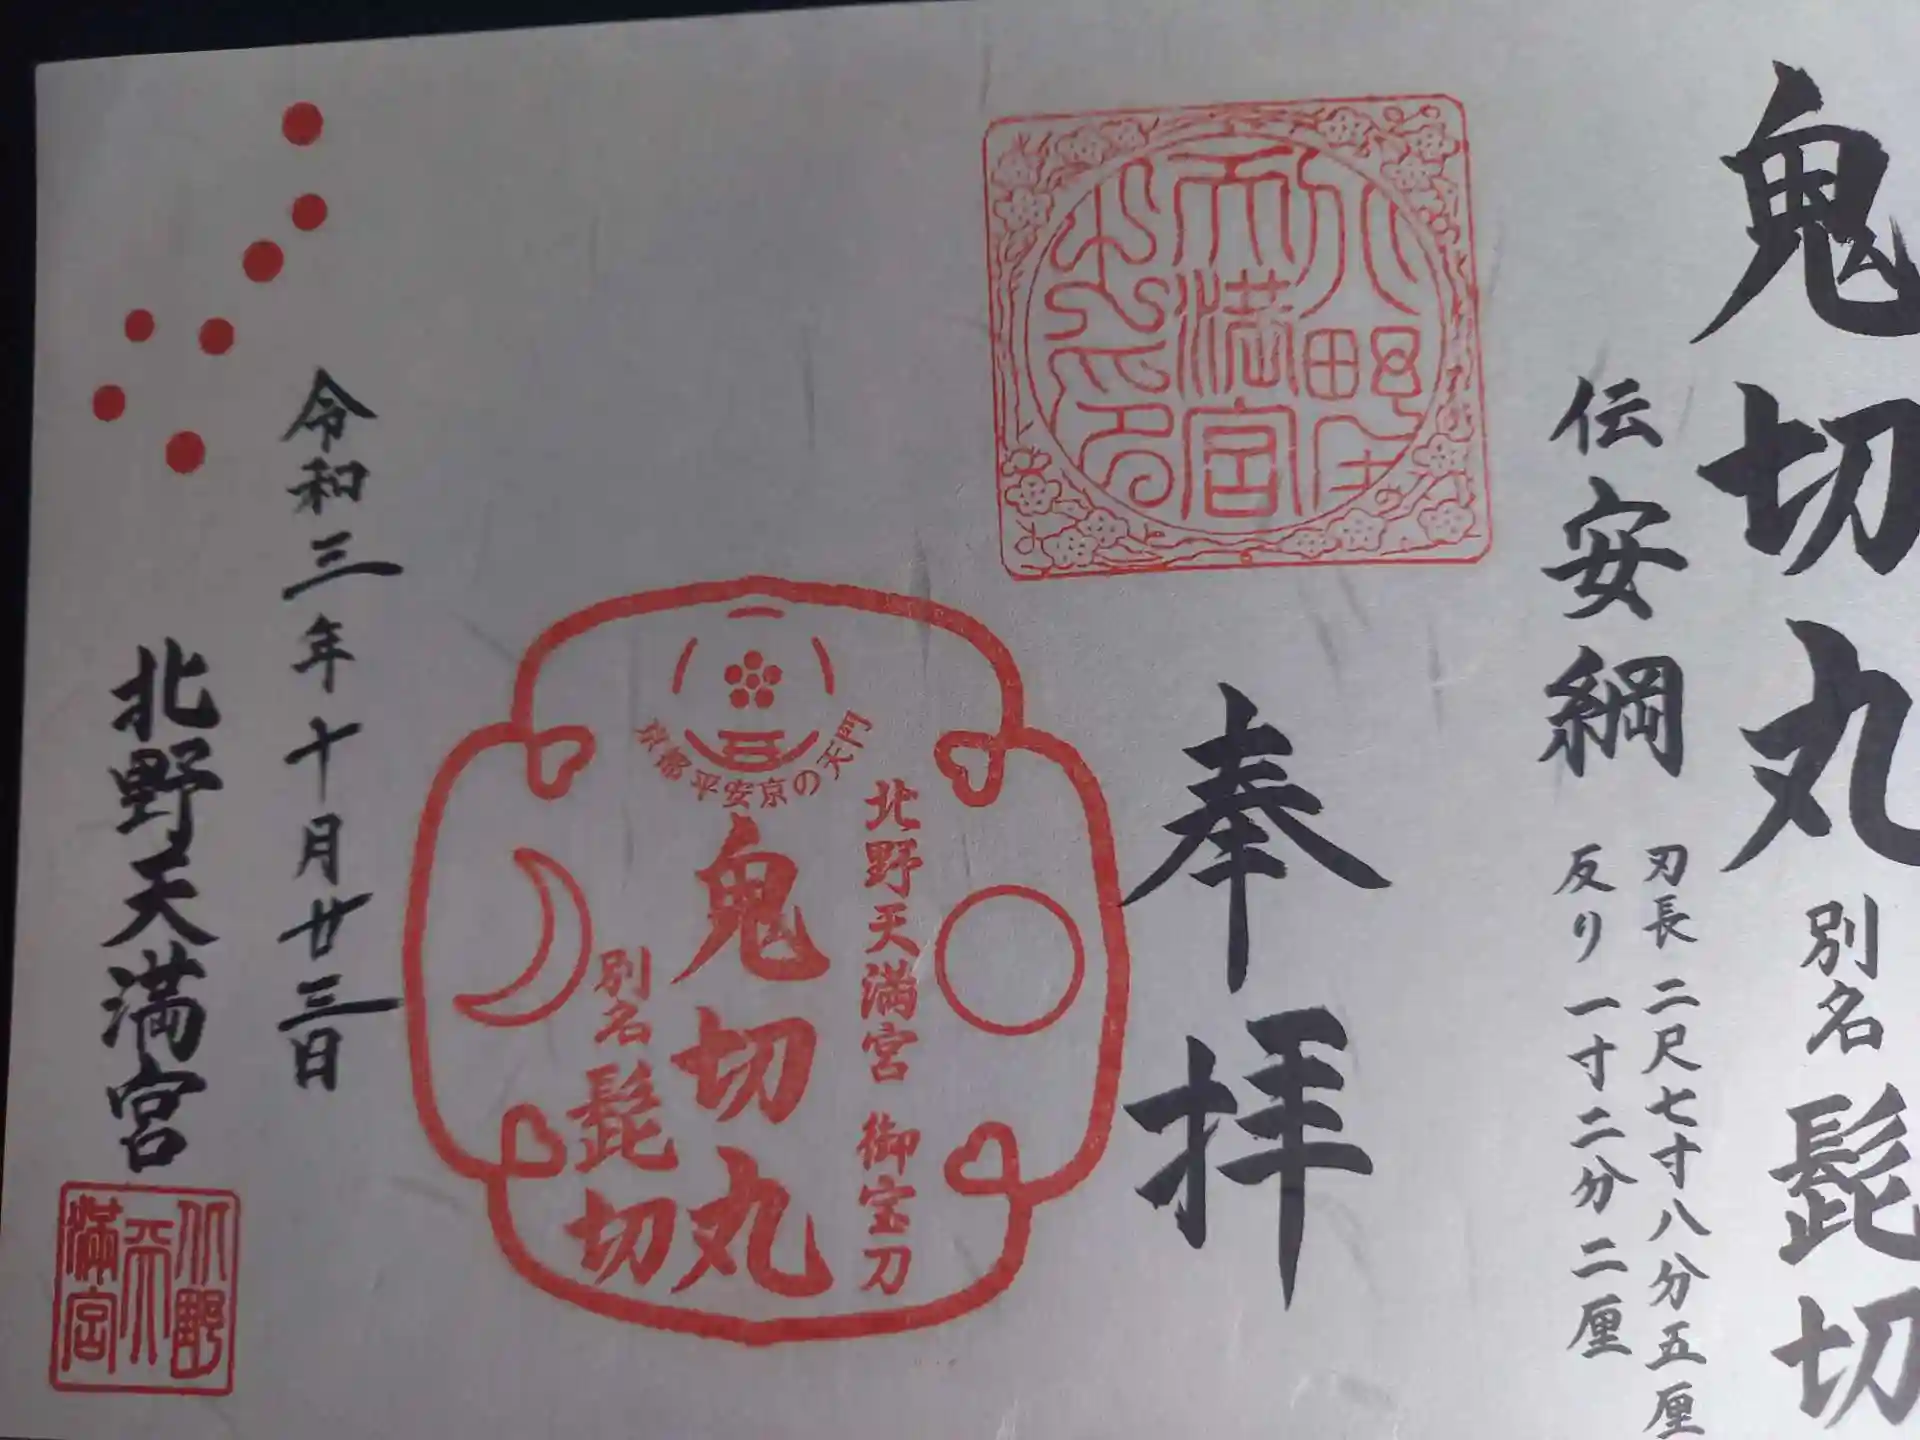 鬼切丸 別名 髭切
伝安綱
刃長 二尺七寸八分五厘
反り 一寸二分二厘
奉拝
北野天満宮
京都平安京の天門
北野天満宮 御宝刀
鬼切丸
別名 髭切
令和三年十月廿三日
北野天満宮
北野天満宮